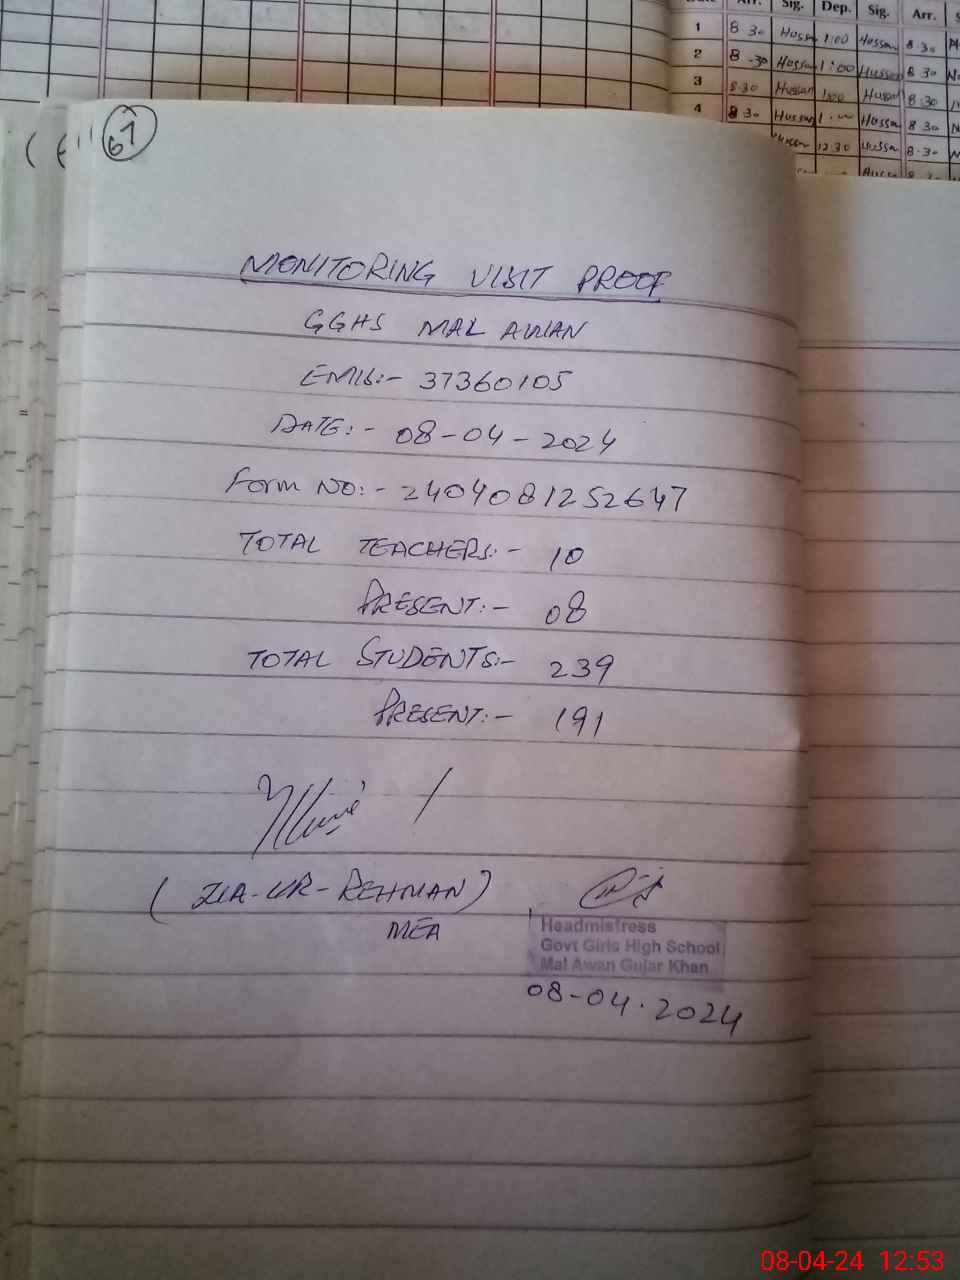 Arr. Sig. Dep. Sig. Arr.
1 8 30 Hassan 1:00 Hassan 8.30
2 8-30 Hassan 1:00 Hussan 8 30
3 8.30 Hussan 1:00 Hussan 8 30
4 8 30 Hussan Hussan 8 30
12 30 Hussan 8.30
67
MONITORING VISIT PROOF
GGHS MAL AWAN
EMIS:- 37360105
DATE:- 08-04-2024
Form NO:- 2404081252647
TOTAL TEACHERS:- 10
PRESENT:- 08
TOTAL STUDENTS:- 239
PRESENT:- 191
(ZIA-UR-REHMAN)
MEA
Headmistress
Govt Girls High School
Mal Awan Gujar Khan
08-04.2024
08-04-24 12:53